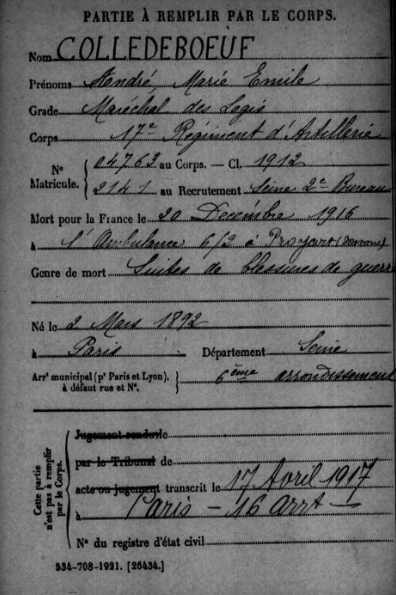 PARTIE À REMPLIR PAR LE CORPS.
Nom COLLEDEBOEUF
Prénoms André, Marie Emile
Grade Maréchal des Logis
Corps 17e Régiment d'Artillerie
N° Matricule. { 04763 au Corps. — Cl. 1912
2141 au Recrutement Seine 2e Bureau
Mort pour la France le 20 Décembre 1916
à l'Ambulance 6/2 à Proyart (Somme)
Genre de mort Suites de blessures de guerre
Né le 2 Mars 1892
à Paris Département Seine
Arrt municipal (pr Paris et Lyon), à défaut rue et N°. } 6ème arrondissement
Cette partie n'est pas à remplir par le Corps.
Jugement rendu le
par le Tribunal de
acte ou jugement transcrit le 17 Avril 1917
à Paris - 16 Arrt -
N° du registre d'état civil
534-708-1921. [26434.]